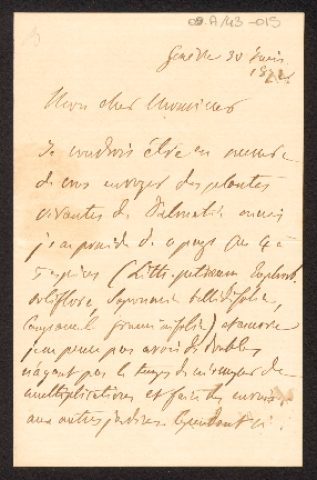 09.A/43-015
Genève 30 Juin
1872.
Mon cher Monsieur
Je voudrais être en mesure
de vous envoyer des plantes
vivantes de Dalmatie mais
je ne possède de ce pays que 4 à
5 espèces (Lith. petraeum, Euphorb.
Saponaria bellidifolia,
graminifolia) et encore
je ne pense pas avoir de doubles
n'ayant pas le temps de m'occuper de
multiplications et faire des envois
aux autres jardins. Cependant si